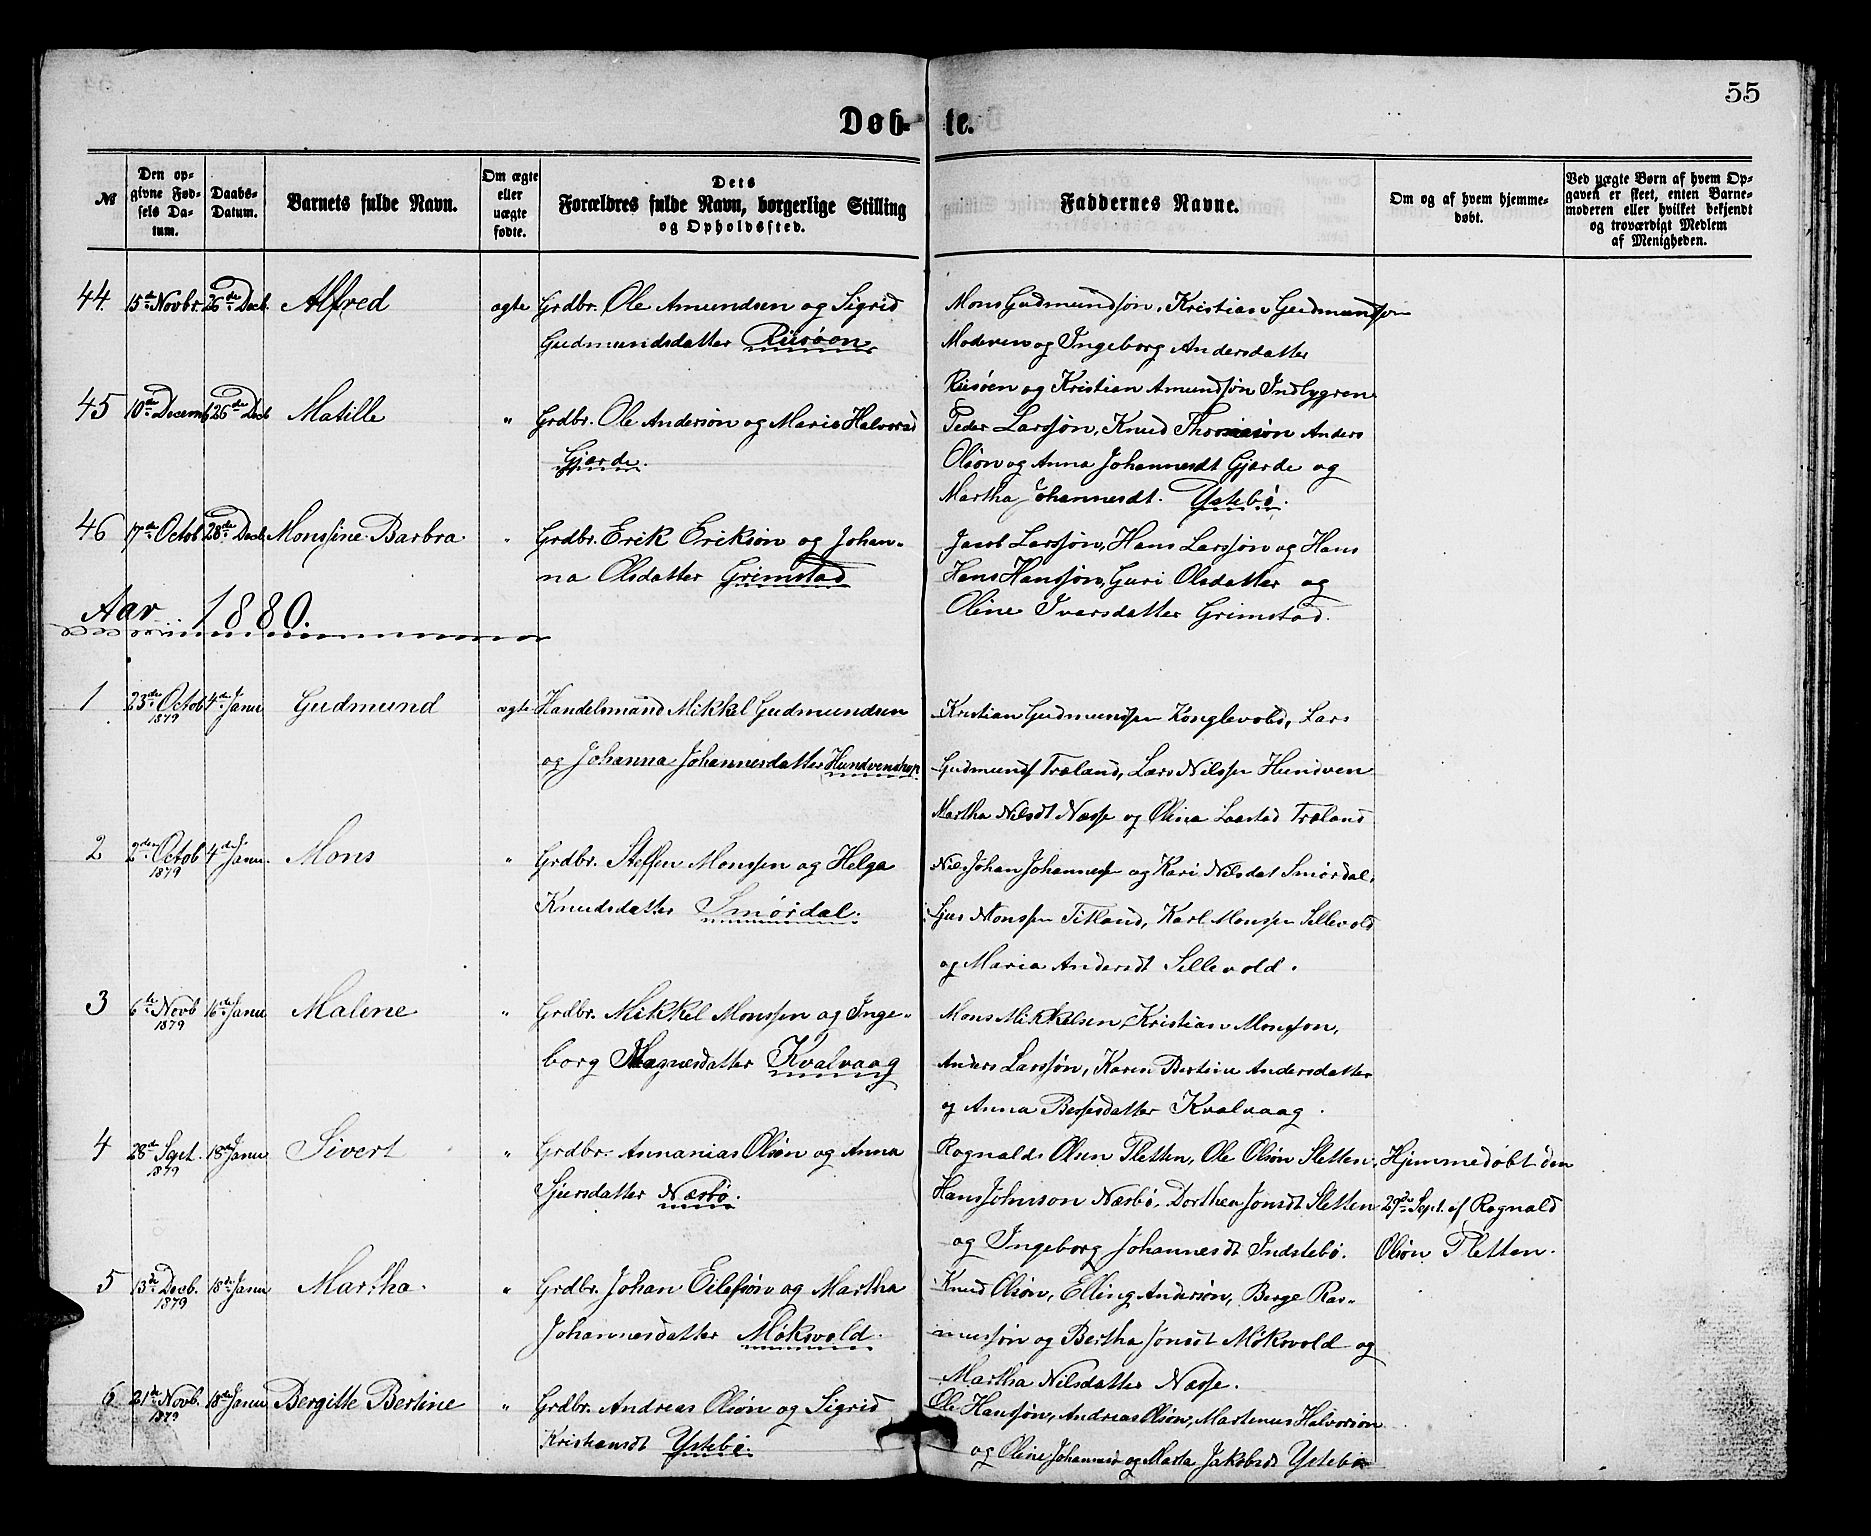 55
Døb- te.
№
Den op-
givne Fød-
sels Da-
tum.
Daabs-
Datum.
Barnets fulde Navn.
Om ægte
eller
uægte
fødte.
Dets
Forældres fulde Navn, borgerlige Stilling
og Opholdssted.
Faddernes Navne.
Om og af hvem hjemme-
døbt.
Ved uægte Børn af hvem Op-
gaven er skeet, enten Barne-
moderen eller hvilket bekjendt
og troværdigt Medlem
af Menigheden.
44. 15de Novbr. 26de Decb. Alfred ægte Grdbr. Ole Amundsen og Sigrid
Gudmundsdatter Riisøen
Mons Gudmundsøn, Kristian Gudmundsøn
Moderen og Ingeborg Andersdatter
Riisøen og Kristian Amundsøn Indbygren
45 10de Decemb 26de Decb Matille " Grdbr. Ole Andersøn og Maria Halvorsd
Gjærde.
Peder Larssøn, Knud Thomasøn Anders
Olsøn og Anna Johannesdt Gjærde og
Martha Johannesdt. Ystebø.
46 17de Octob 28de Decb. Monssine Barbra " Grdbr. Erik Eriksøn og Johan-
na Olsdatter Grimstad
Jacob Larssøn, Hans Larssøn og Hans
Hans Hanssøn, Guri Olsdatter og
Oline Iversdatter Grimstad.
Aar 1880.
1 23de Octob 1879 4de Janu Gudmund ægte Handelsmand Mikkel Gudmundsen
og Johanna Johannesdatter Hundvenshop
Kristian Gudmundssen Konglevold, Lars
Gudmunds Træland, Lars Nilssen Hundven
Martha Nilsdt Næsse og Olina Larsd Træland
2 2den Octob 1879 4de Janu. Mons " Grdbr. Steffen Monssen og Helga
Knudsdatter Smørdal.
Nils Johan Johanness og Kari Nilsdat Smørdal,
Sjur Monssen Titland, Karl Monssen Sellevold
og Maria Andersdt Sellevold.
3 6te Novb 1879 16de Janu Malene " Grdbr. Mikkel Monssen og Inge-
borg Magnesdatter Kvalvaag
Mons Mikkelsen, Kristian Monsson,
Anders Larssøn, Karen Bertine Andersdatter
og Anna Bersesdatter Kvalvaag.
4 28de Sept. 1879 18de Janu Sivert " Grdbr. Annanias Olsøn og Anna
Sjursdatter Næsbø.
Rognald Olsen Fletten, Ole Olsøn Sletten,
Hans Johnson Næsbø, Dorthea Jonsdt Sletten
og Ingeborg Johannesdt Indstebø.
Hjemmedøbt den
29de Sept. af Rognald
Olsøn Fletten.
5 13de Decb. 1879 18de Janu Martha. " Grdbr. Johan Eilefsøn og Martha
Johannesdatter Møksvold.
Knud Olsøn, Elling Andersøn, Berge Ras-
mussøn og Bertha Jonsdt Møksvold og
Martha Nilsdatter Næsse.
6 21de Novb. 1879 18de Janu Bergitte Bertine " Grdbr. Andreas Olsøn og Sigrid
Kristiansdt Ystebø.
Ole Hanssøn, Andreas Olsøn, Martenus Halvorsøn
og Oline Johannesd og Marta Jakobsdt Ystebø